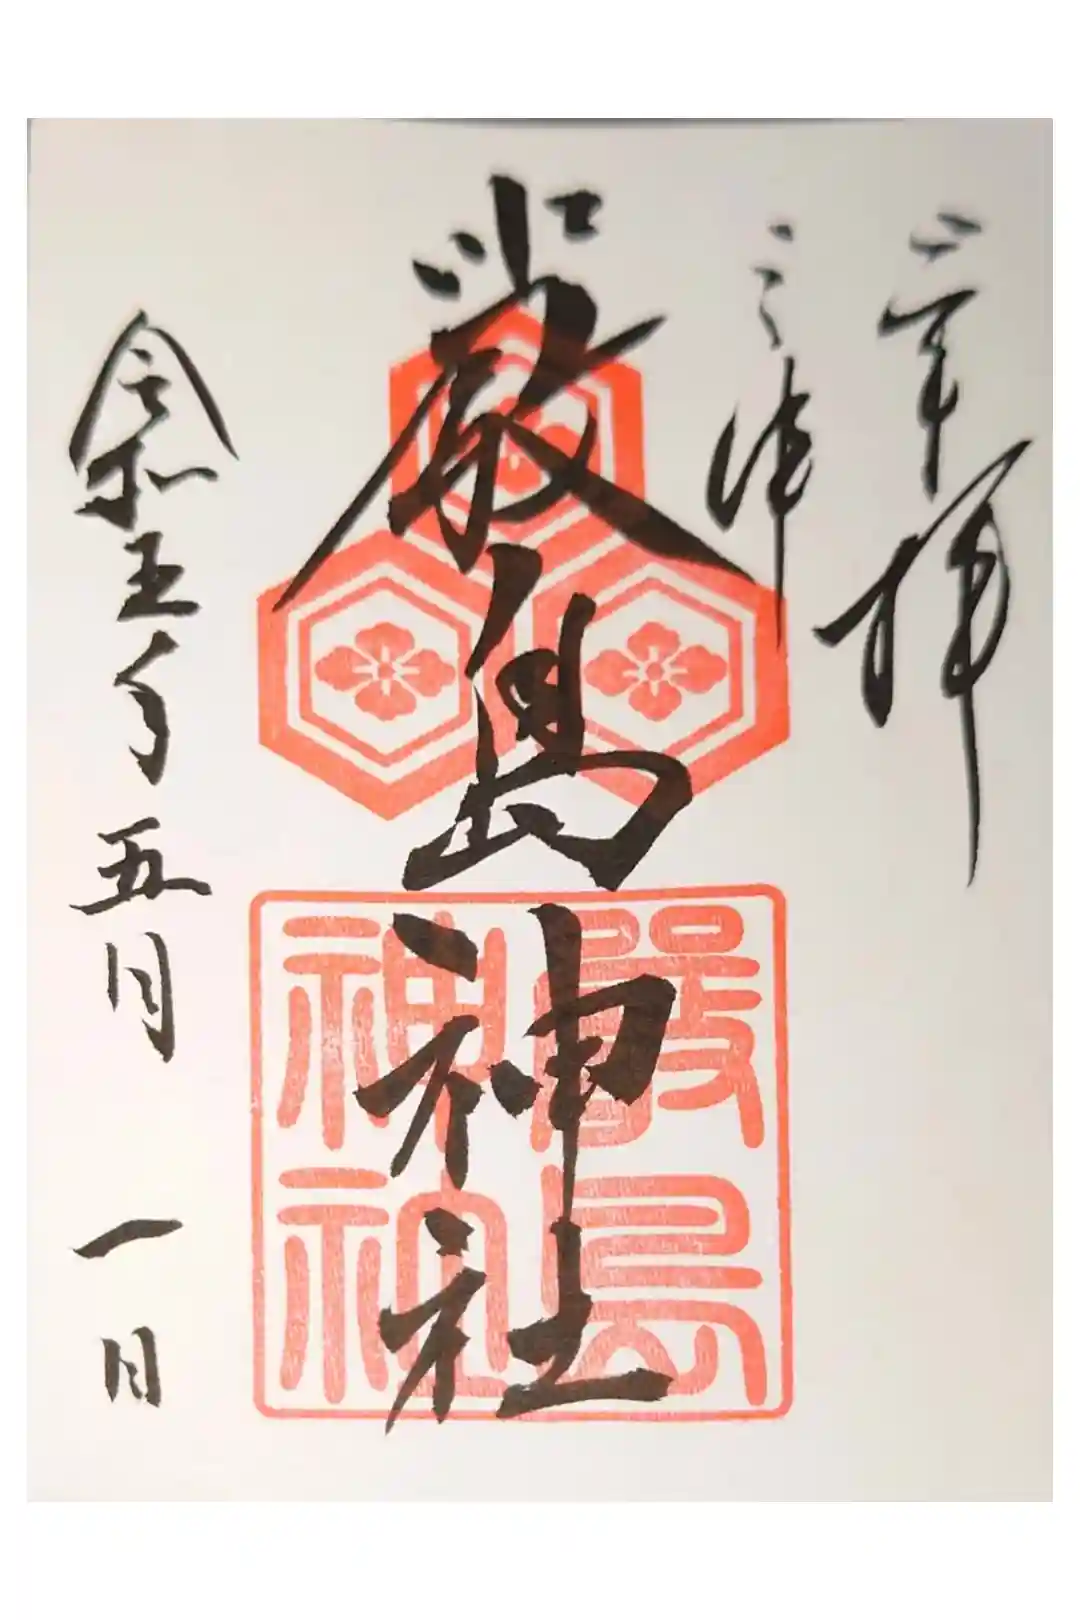 奉拝
嚴島神社
令和五年五月一日
嚴島
神社